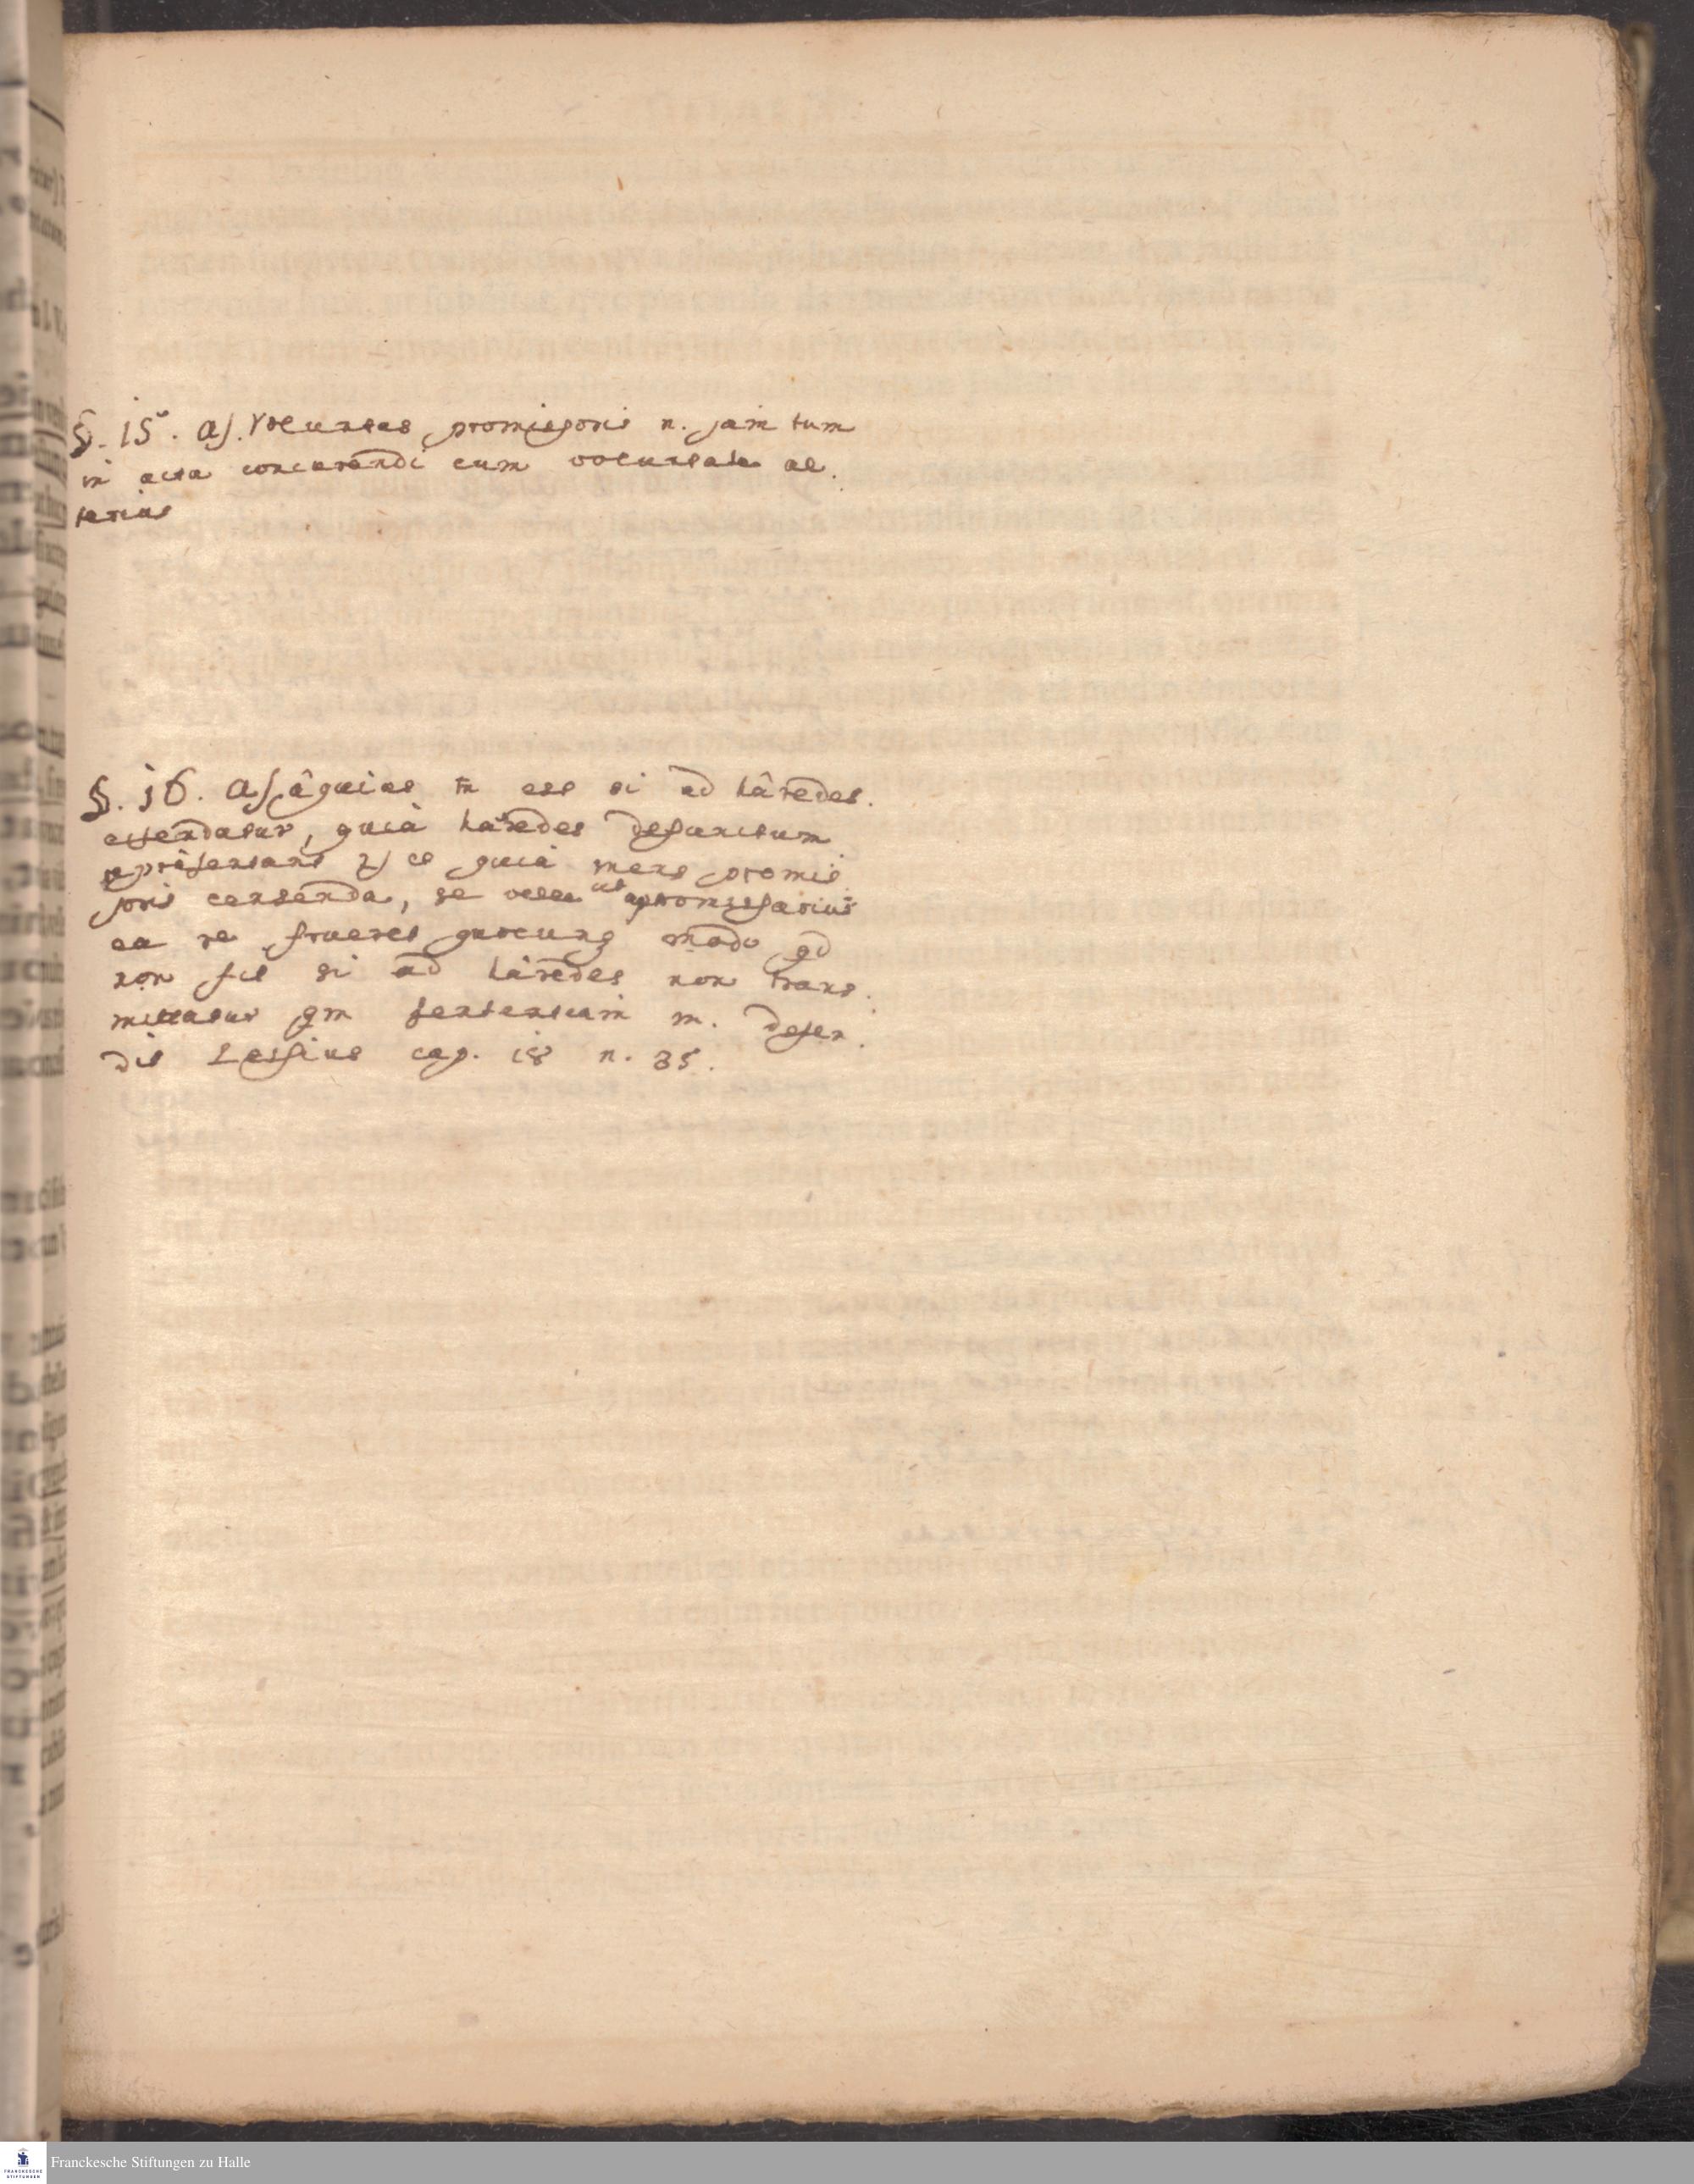 §. 15. a). voluntas promissoris n. jam tum
in acta concurendi cum voluntate al.
terius
§. 16. a) æquius tn̄ est si ad hæredes.
extendatur, quia hæredes defunctum
repræsentant 2) et quia mens promis
soris censenda, se velle ut promissarius
ea re frueret quocunq modo qd
non fit si ad hæredes non trans.
mittatur qm sententiam m. defen.
dit Lessius cap. 18 n. 35.
Franckesche Stiftungen zu Halle